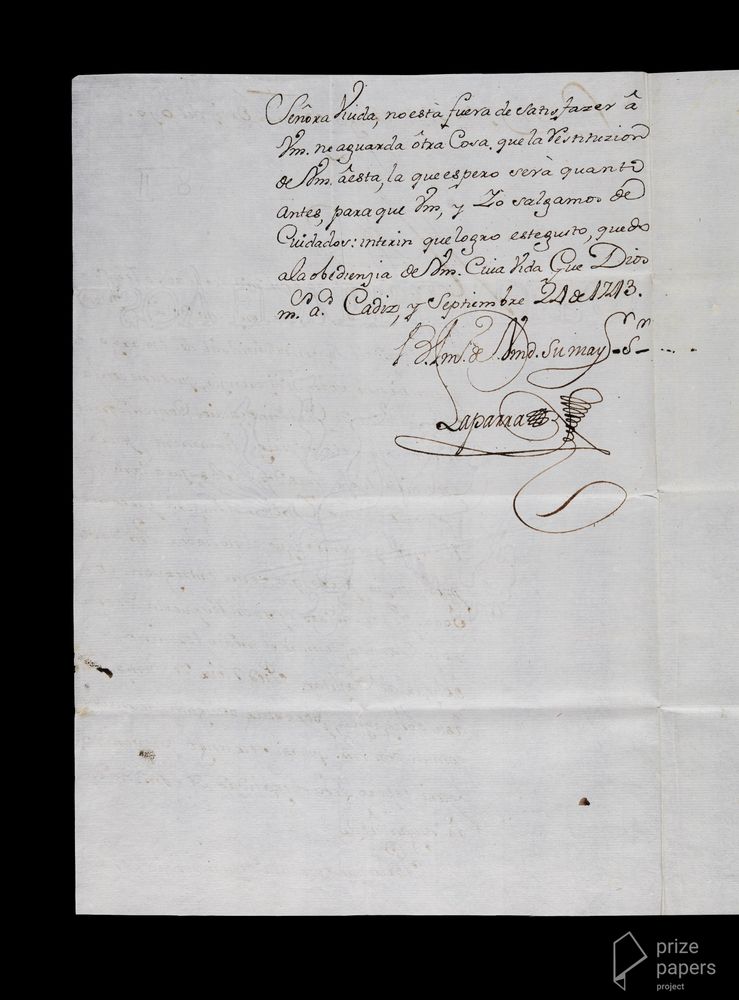 Señora Viuda, no està fuera de satisfazer â
Vm. ne aguarda ôtra Cosa, que la Restituzion
de Vm. âesta, la que espero serà quanto
antes, para que Vm, y Yo salgamos de
Cuidados: interin que logro este gusto, quedo
a la obedienzia de Vm. Cuia Vida Gue Dios
m.s a.s Cadiz, y Septiembre 24 de 1743.
B. l m.s de Vmd. su may.r S.r
Laparra
prize
papers
project